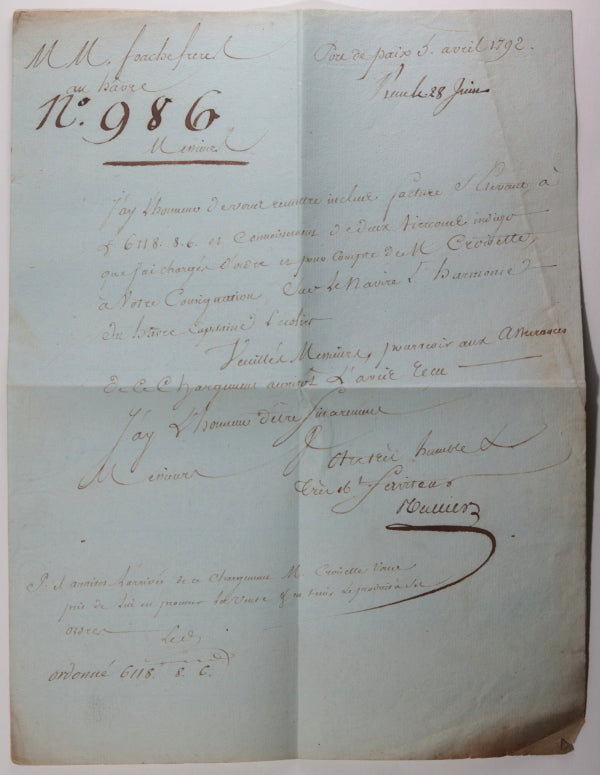 M M. foache freres
au havre
Port de paix 5. avril 1792.
Reçu le 28 Juin
N.º 986
Messieurs
J'ay L'honneur de vous remettre inclus facture S'Elevant à
₶ 6118. 8. 6. et Connoissement de deux indigo
que j'ai chargés d'ordre et pour Compte de M. Croizette,
à Votre Consignation, Sur Le Navire L'harmonie
du havre Capitaine
Veuillés Messieurs, pourvoir aux Assurances
de Ce Chargement aussitôt L'avis recu
J'ay L'honneur d'être Sincerement
Messieurs
Votre très humble &
très ob.t Serviteur
P. S. aussitôt L'arrivée de ce Chargement M. Croizette Vous
prie de lui en procurer la Vente & en tenir Le produit à Ses
ordres
Led.
ordonné 6118. 8. 6.